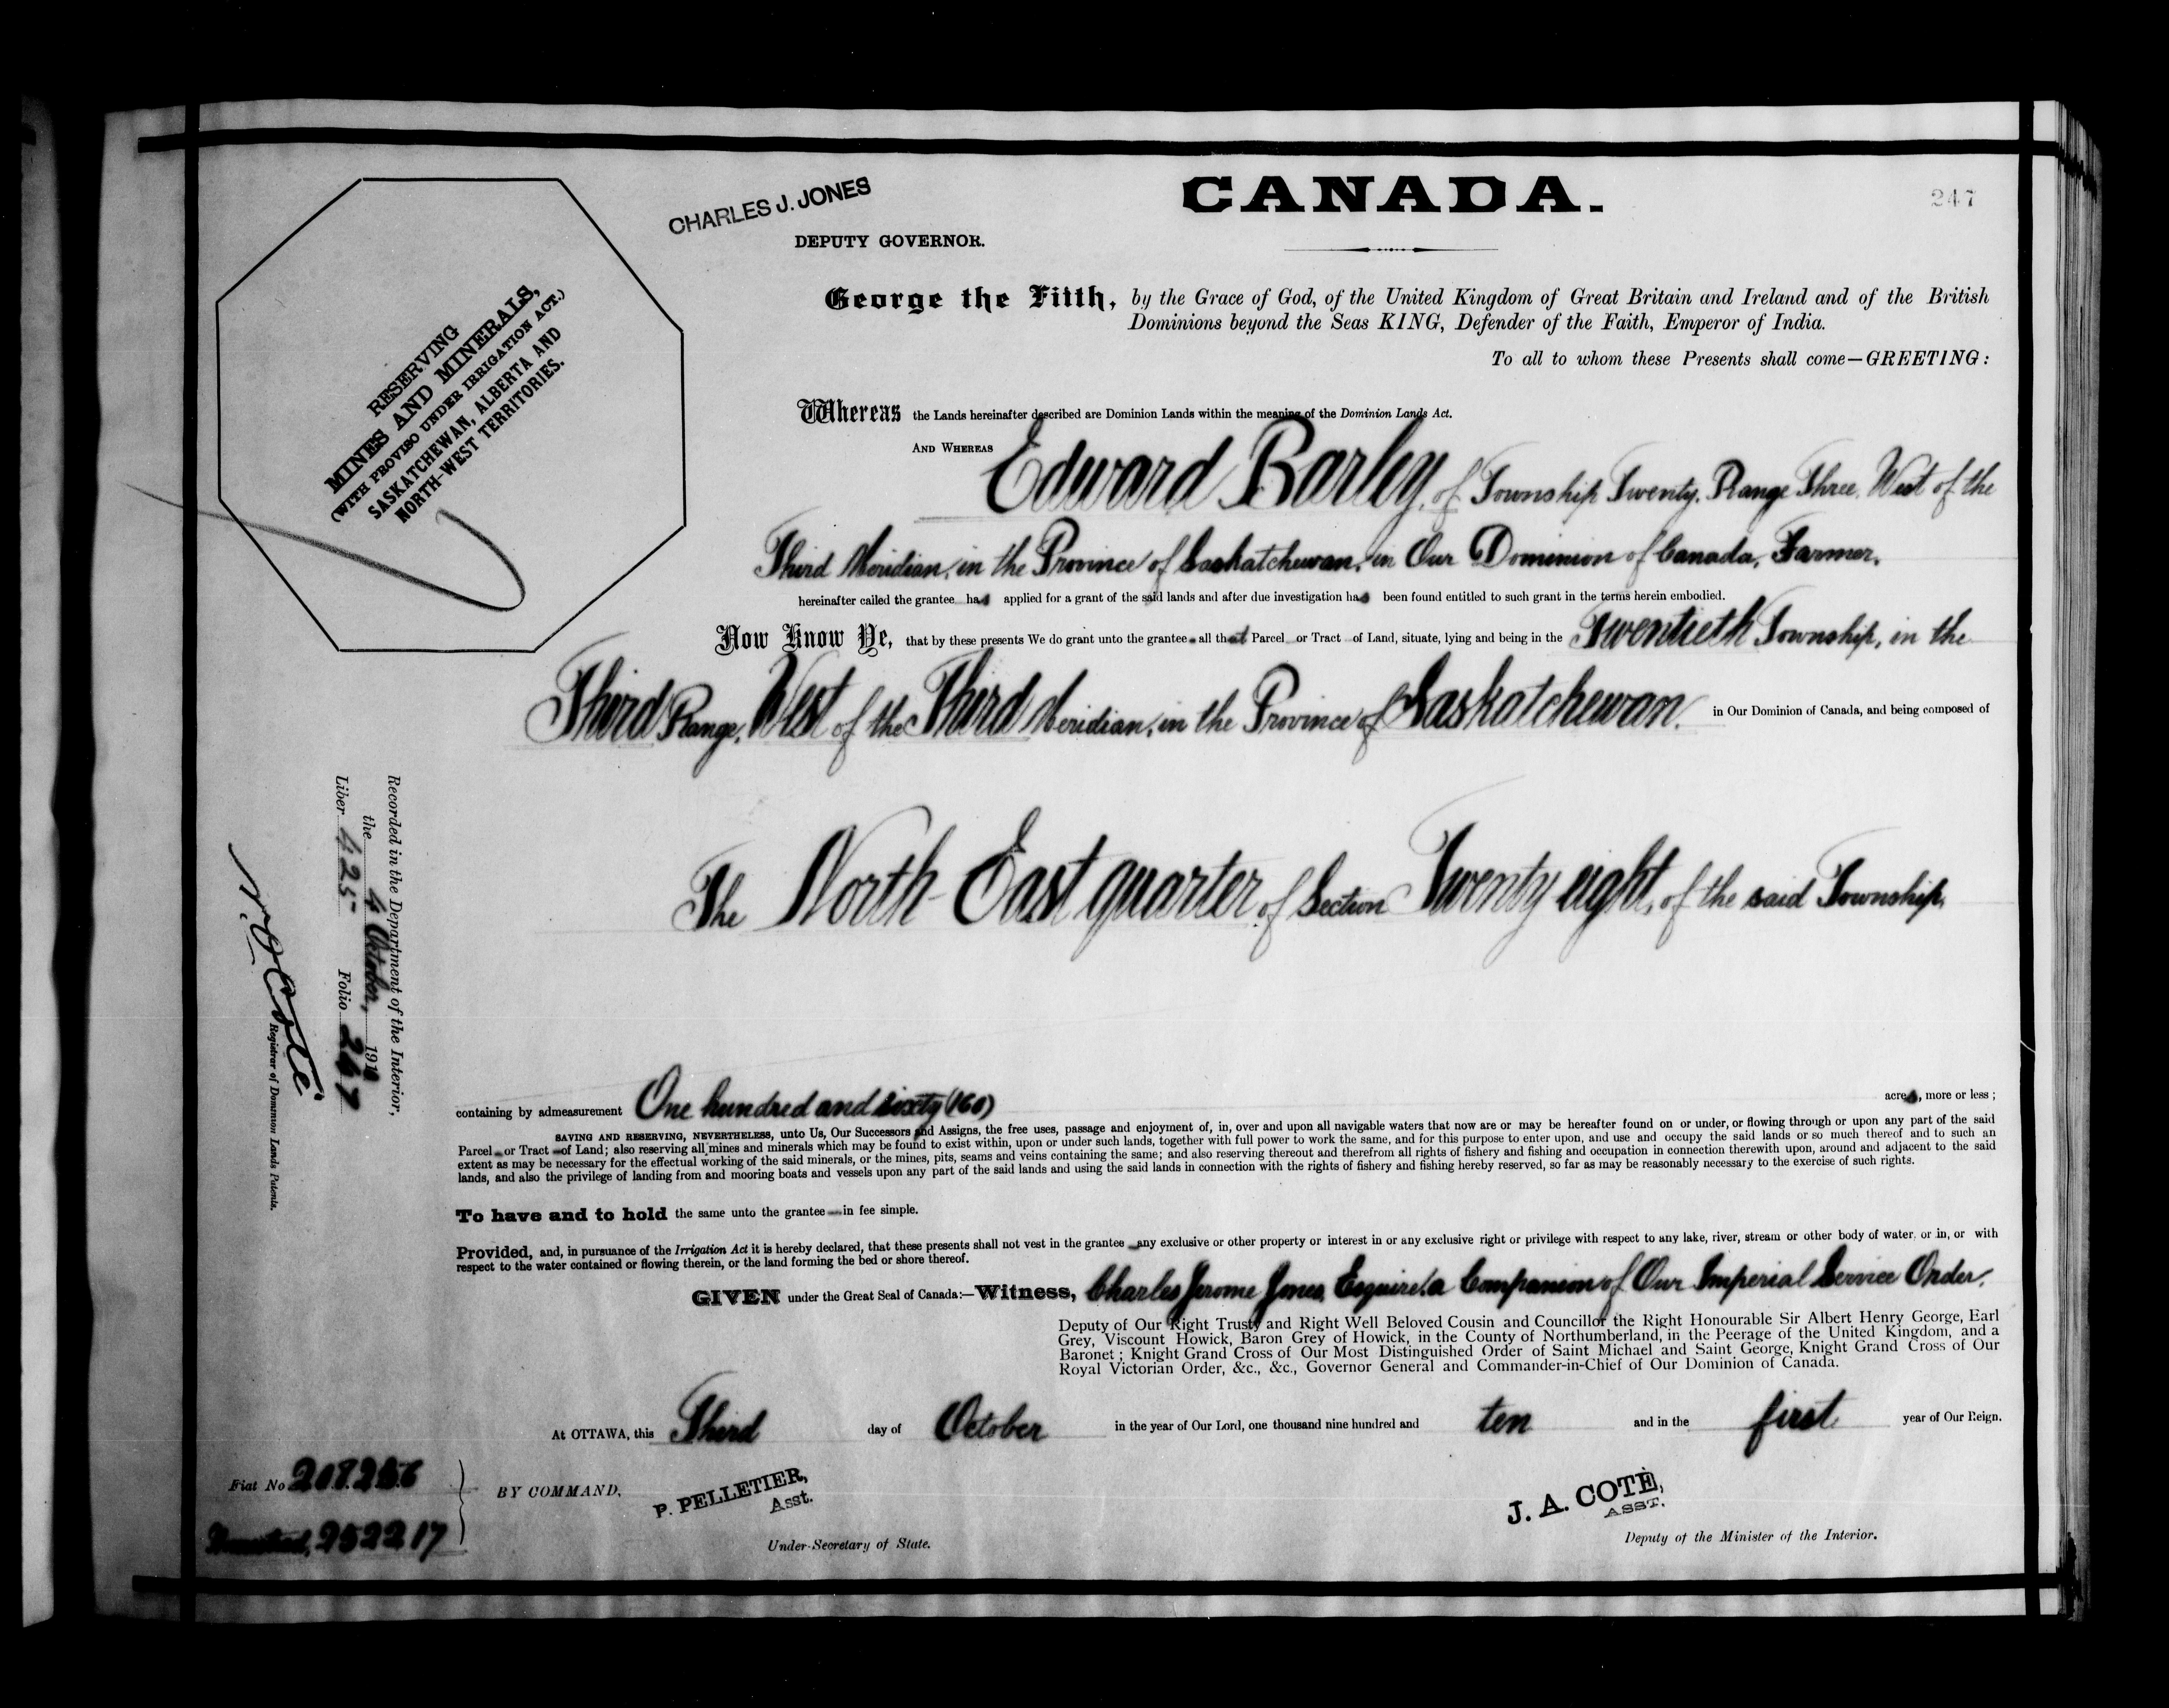 CANADA.
247
CHARLES J. JONES
DEPUTY GOVERNOR.
RESERVING
MINES AND MINERALS,
(WITH PROVISO UNDER IRRIGATION ACT.)
SASKATCHEWAN, ALBERTA AND
NORTH-WEST TERRITORIES.
George the Fifth, by the Grace of God, of the United Kingdom of Great Britain and Ireland and of the British
Dominions beyond the Seas KING, Defender of the Faith, Emperor of India.
To all to whom these Presents shall come—GREETING:
Whereas the Lands hereinafter described are Dominion Lands within the meaning of the Dominion Lands Act.
AND WHEREAS Edward Barley, of Township Twenty, Range Three, West of the
Third Meridian, in the Province of Saskatchewan, in Our Dominion of Canada, Farmer,
hereinafter called the grantee has applied for a grant of the said lands and after due investigation has been found entitled to such grant in the terms herein embodied.
Now Know Ye, that by these presents We do grant unto the grantee all that Parcel or Tract of Land, situate, lying and being in the Twentieth Township, in the
Third Range, West of the Third Meridian, in the Province of Saskatchewan, in Our Dominion of Canada, and being composed of
The North East quarter of Section Twenty eight, of the said Township,
Recorded in the Department of the Interior,
the 4 October, 1910
Liber 425 Folio 247
Registrar of Dominion Lands Patents.
containing by admeasurement One hundred and sixty (160) acres, more or less;
SAVING AND RESERVING, NEVERTHELESS, unto Us, Our Successors and Assigns, the free uses, passage and enjoyment of, in, over and upon all navigable waters that now are or may be hereafter found on or under, or flowing through or upon any part of the said
Parcel or Tract of Land; also reserving all mines and minerals which may be found to exist within, upon or under such lands, together with full power to work the same, and for this purpose to enter upon, and use and occupy the said lands or so much thereof and to such an
extent as may be necessary for the effectual working of the said minerals, or the mines, pits, seams and veins containing the same; and also reserving thereout and therefrom all rights of fishery and fishing and occupation in connection therewith upon, around and adjacent to the said
lands, and also the privilege of landing from and mooring boats and vessels upon any part of the said lands and using the said lands in connection with the rights of fishery and fishing hereby reserved, so far as may be reasonably necessary to the exercise of such rights.
To have and to hold the same unto the grantee in fee simple.
Provided, and, in pursuance of the Irrigation Act it is hereby declared, that these presents shall not vest in the grantee any exclusive or other property or interest in or any exclusive right or privilege with respect to any lake, river, stream or other body of water, or in, or with
respect to the water contained or flowing therein, or the land forming the bed or shore thereof.
GIVEN under the Great Seal of Canada:—Witness, Charles Jerome Jones, Esquire, a Companion of Our Imperial Service Order,
Deputy of Our Right Trusty and Right Well Beloved Cousin and Councillor the Right Honourable Sir Albert Henry George, Earl
Grey, Viscount Howick, Baron Grey of Howick, in the County of Northumberland, in the Peerage of the United Kingdom, and a
Baronet; Knight Grand Cross of Our Most Distinguished Order of Saint Michael and Saint George, Knight Grand Cross of Our
Royal Victorian Order, &c., &c., Governor General and Commander-in-Chief of Our Dominion of Canada.
At OTTAWA, this Third day of October in the year of Our Lord, one thousand nine hundred and ten and in the first year of Our Reign.
Fiat No
BY COMMAND,
P. PELLETIER,
Asst.
Under-Secretary of State.
J. A. COTÉ,
ASST.
Deputy of the Minister of the Interior.